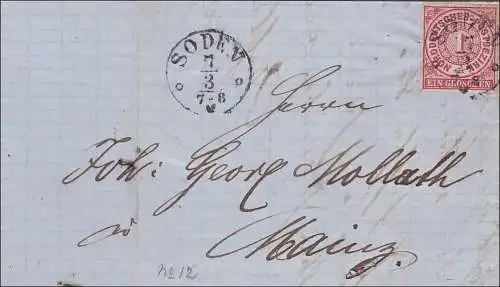 SODEN
7
3
7-8
NORDDEUTSCHER POSTBEZIRK
1
EIN GROSCHEN
Herrn
Joh: Georg Mollath
zu
Mainz.
No 12